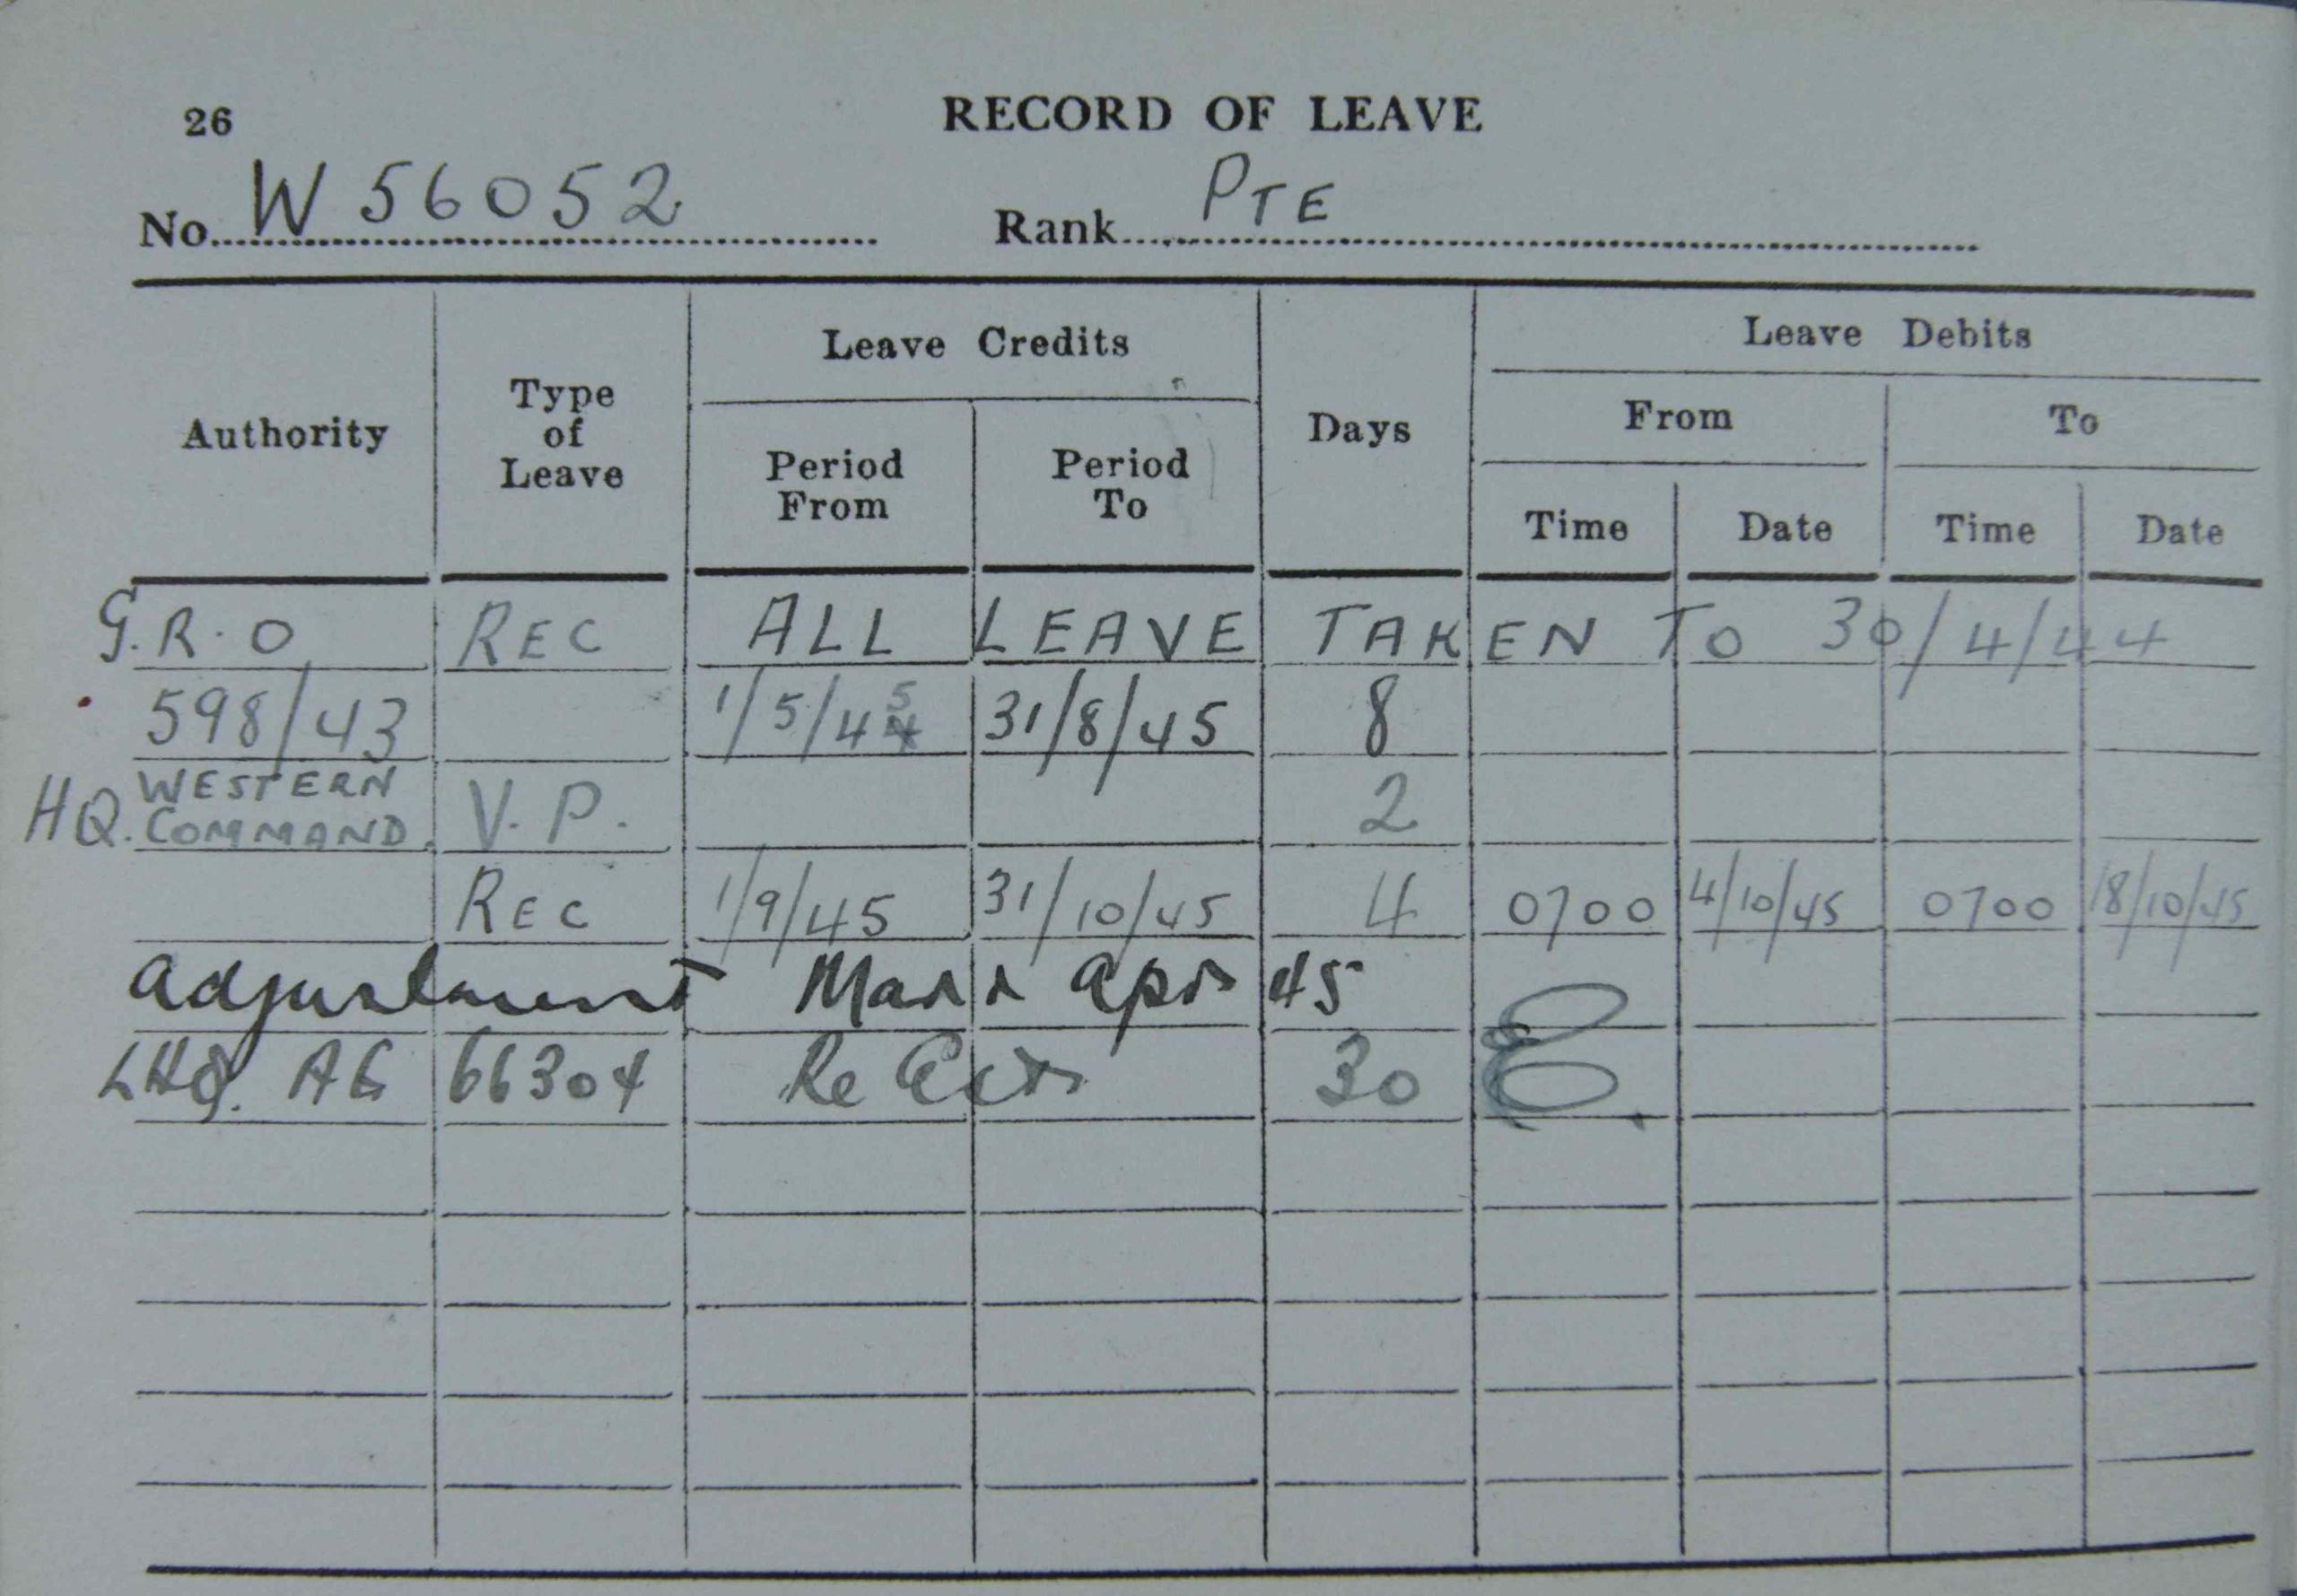 26 RECORD OF LEAVE
No. W 56052 Rank PTE
Leave Credits Leave Debits
Authority Type of Leave Period From Period To Days From To
Time Date Time Date
G.R.O REC ALL LEAVE TAKEN TO 30/4/44
598/43 1/5/45 31/8/45 8
HQ. WESTERN COMMAND. V.P. 2
REC 1/9/45 31/10/45 4 0700 4/10/45 0700 18/10/45
adjustment Mar & Apr 45
LHQ. AG 66304 Re 30